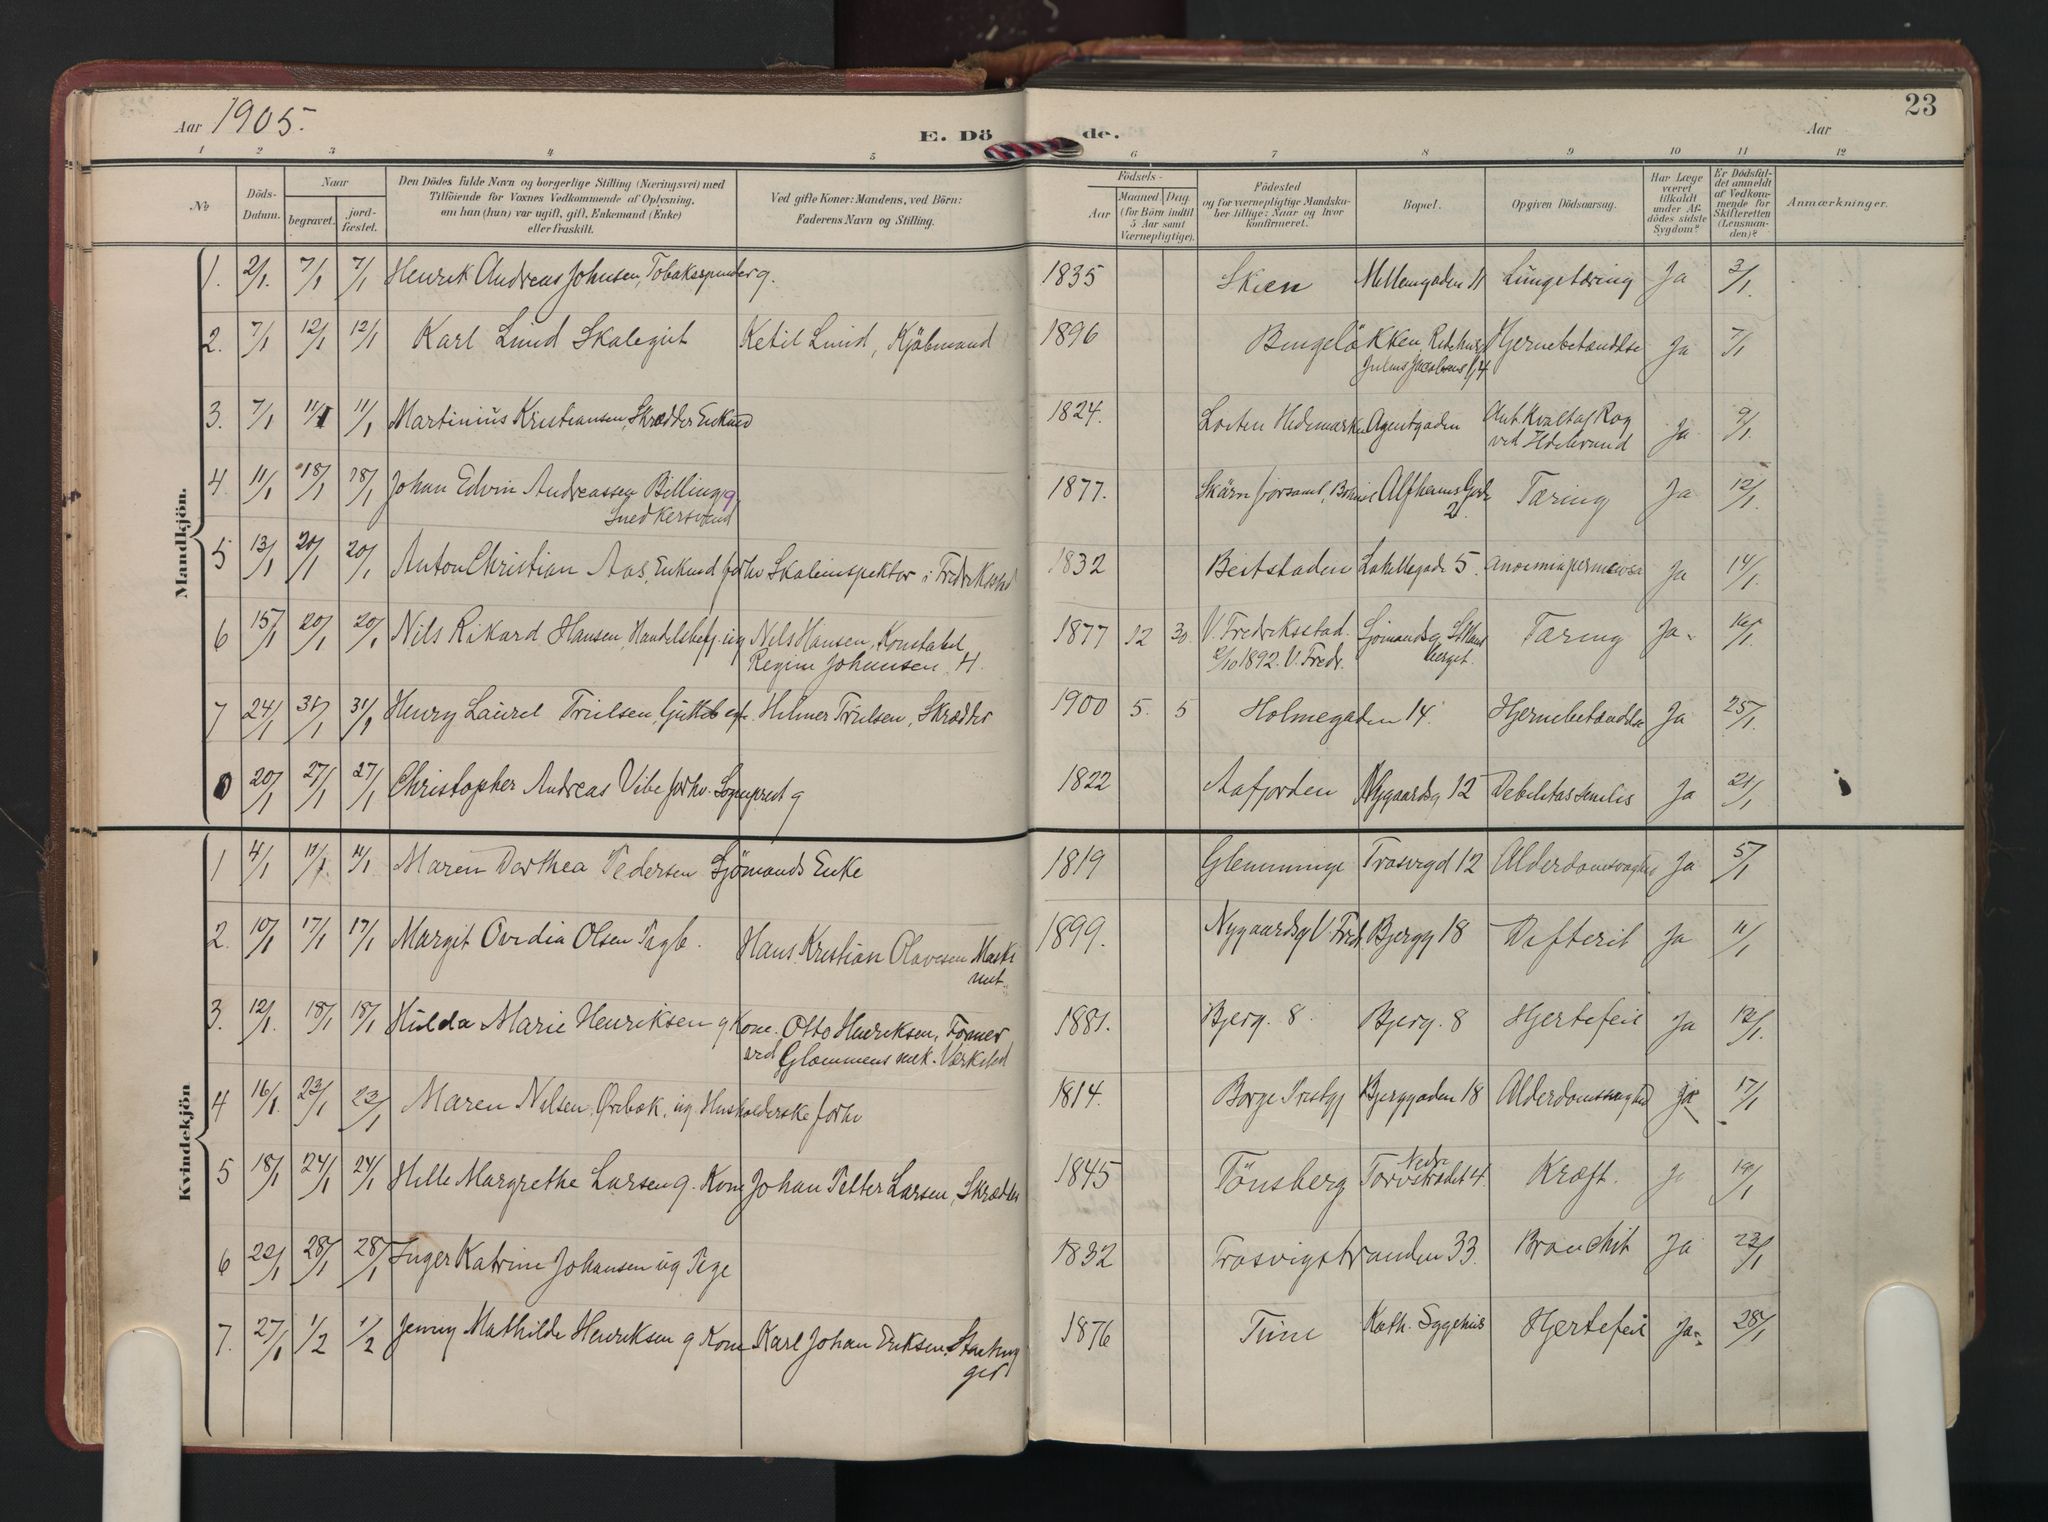 Aar 1905.
E. Dö de.
Aar
23
1 2 3 4 5 6 7 8 9 10 11 12
№
Döds-Datum.
Naar
begravet.
jord-fæstet.
Den Dödes fulde Navn og borgerlige Stilling (Næringsvei) med
Tilföiende for Voxnes Vedkommende af Oplysning,
om han (hun) var ugift, gift, Enkemand (Enke)
eller fraskilt.
Ved gifte Koner: Mandens, ved Börn:
Faderens Navn og Stilling.
Födsels-
Aar
Maaned Dag
(for Börn indtil
5 Aar samt
Værnepligtige).
Födested
og for værnepligtige Mandska-
ber tillige: Naar og hvor
konfirmeret.
Bopæl.
Opgiven Dödsaarsag.
Har Læge
været
tilkaldt
under Af-
dödes sidste
Sygdom?
Er Dödsfal-
det anmeldt
af Vedkom-
mende for
Skifteretten
(Lensman-
den)?
Anmærkninger.
Mandkjön.
1. 2/1. 7/1 7/1 Henrik Andreas Johnsen, Tobaksspinder g. 1835 Skien Mellemgaden 11 Lungetæring Ja 3/1
2. 7/1 12/1 12/1 Karl Lund Skolegut Ketil Lund, Kjöbmand 1896 Hjernebetændelse Ja 7/1
3. 7/1 11/1 11/1 Martinius Kristiansen, Skrædder Enkmd 1824. Loiten Hedemarken Agentgaden Ja 9/1
4. 11/1 18/1 18/1 Johan Edvin Andreassen Billing g. 1877. Alfheims Gade Tæring Ja 12/1
Snedkersvend 2
5 13/1 20/1 20/1 Anton Christian Aas, Enkmd forhv Skoleinspektør i Fredrikstad 1832 Beitstaden 5. Ja 14/1
6 15/1 20/1 20/1 Nils Rikard Hansen, Handelsbetj. ug Nils Hansen, Konstabel 1877 12 30. V. Fredriksstad. Sjömandsg Tæring Ja- 16/1
Johannsen, H. 2/10 1892. V. Fredr.
7 24/1 31/1 31/1 Henry Laurel Truelsen, Guttebegr. Hilmer Truelsen, Skrædder 1900 5. 5 Holmegaden 14. Hjernebetændelse Ja 25/1
20/1 27/1 27/1 Christopher Andreas Vibe forhv. Sogneprest g 1822 Aafjorden Nygaardsg 12 Debilitas senilis Ja 21/1
Kvindekjön
1 4/1 11/1 11/1 Maren Dorthea Pedersen Sjömands Enke 1819 Glemminge Trosvigd 12 Ja 5/1
2. 10/1 17/1 17/1 Margit Ovidia Olsen Pigb. Hans Kristian Olavesen Maski 1899. Nygaardsg V. Fred. Bjergg 18 Defterit Ja 11/1
3. 12/1. 18/1 18/1 Hulda Marie Henriksen g Kone. Otto Henriksen, Former 1881. Bjerg. 8. Bjerg. 8 Hjertefeil Ja 13/1.
ved Glommens mek. Værksted
4 16/1. 23/1 23/1 Maren Nilsen Ørbæk, ug Husholderske forhv 1814. Borge Prestgj Bjerggaden 18 Alderdomssvaghed Ja 17/1
5 18/1 24/1 24/1 Helle Margrethe Larsen g. Kone Johan Petter Larsen, Skrædder 1845 Tönsberg Nedre Torvstrædet 4. Kræft. Ja 19/1
6 22/1 28/1 28/1 Inger Katrine Johansen ug Pige 1832 Trosvigstranden 33. Bronchit Ja 23/1
7. 27/1 1/2 1/2 Jenny Mathilde Henriksen g Kone Karl Johan Eriksen. 1876 Tune Kath. Sygehus Hjertefeil Ja- 28/1